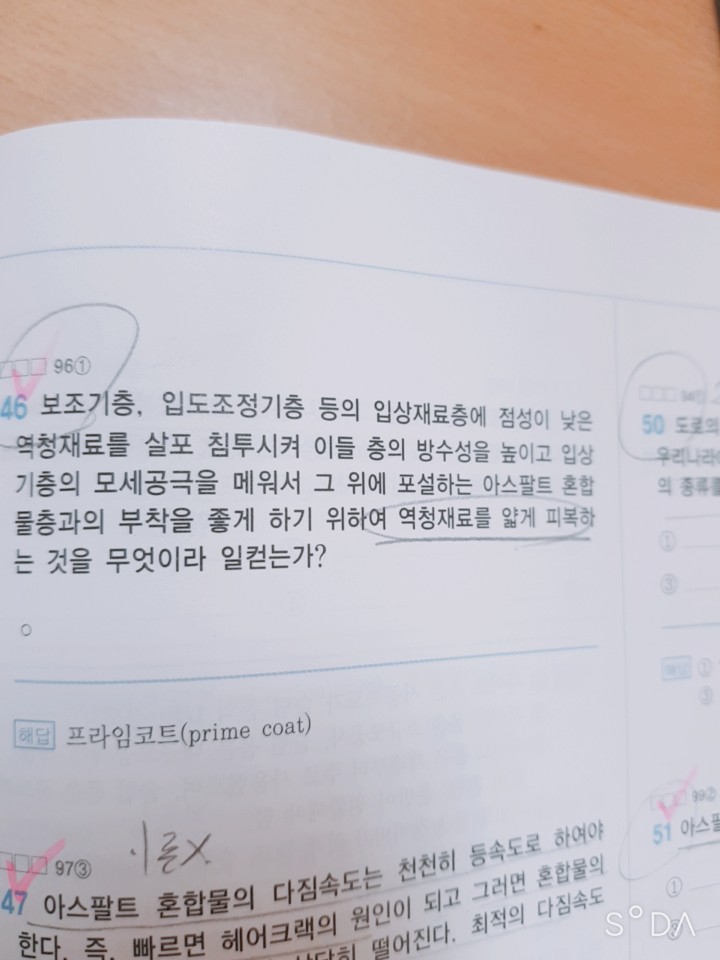 96①
46 보조기층, 입도조정기층 등의 입상재료층에 점성이 낮은
역청재료를 살포 침투시켜 이들 층의 방수성을 높이고 입상
기층의 모세공극을 메워서 그 위에 포설하는 아스팔트 혼합
물층과의 부착을 좋게 하기 위하여 역청재료를 얇게 피복하
는 것을 무엇이라 일컫는가?
해답 프라임코트(prime coat)
97③
47 아스팔트 혼합물의 다짐속도는 천천히 등속도로 하여야
한다. 즉, 빠르면 헤어크랙의 원인이 되고 그러면 혼합물의
떨어진다. 최적의 다짐속도
50 도로의
우리나라
의 종류를
①
③
해답 ①
③
99②
51 아스팔
①
SODA